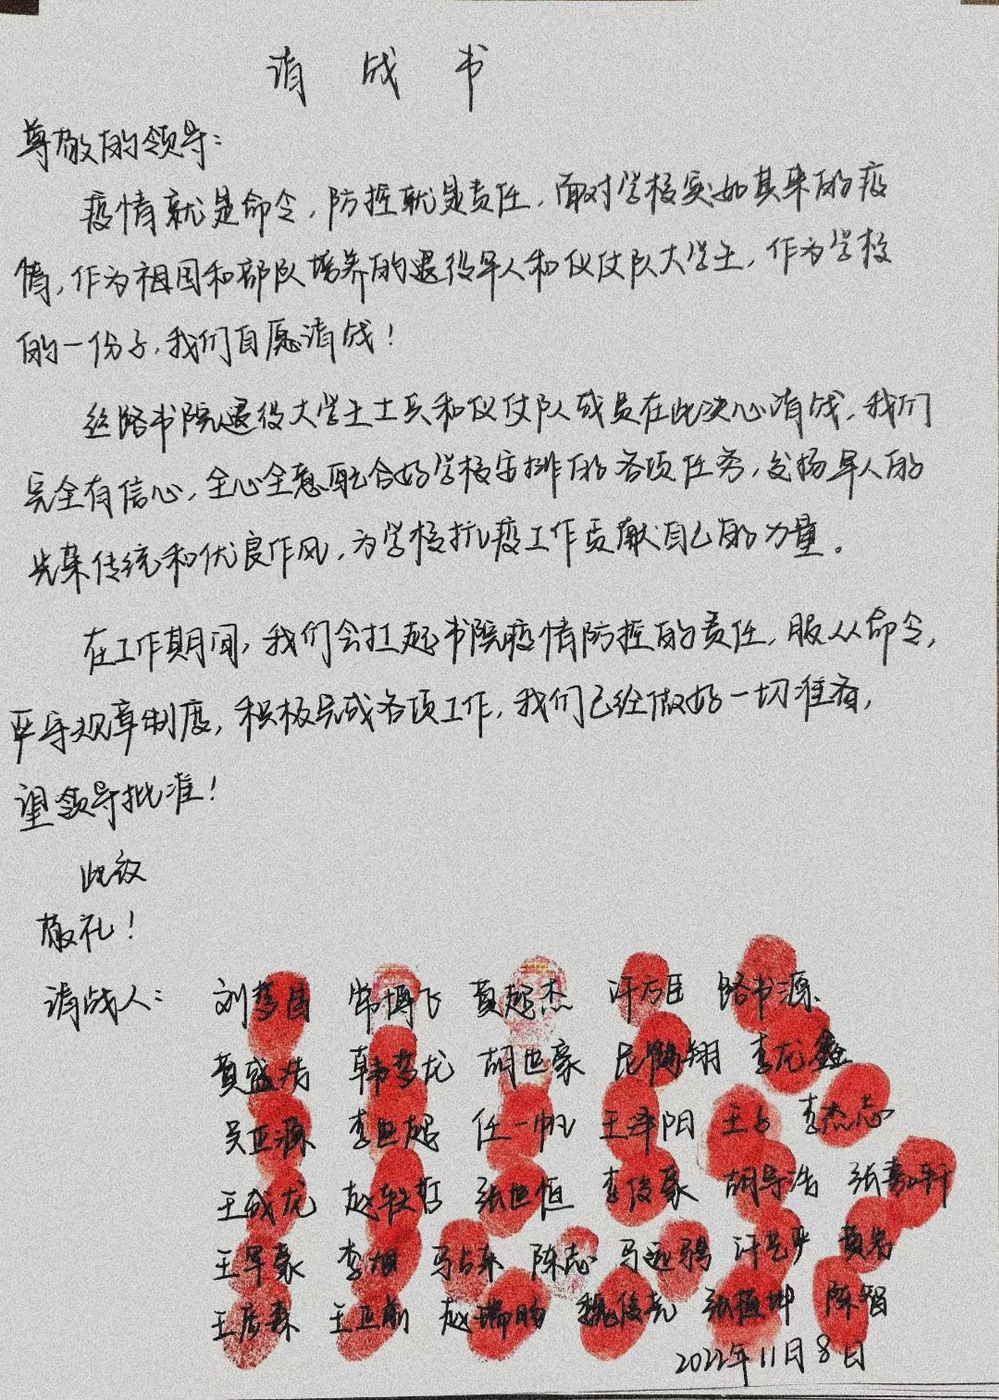 请战书
尊敬的领导：
疫情就是命令，防控就是责任，面对学校突如其来的疫
情，作为祖国和部队培养的退役军人和仪仗队大学生，作为学校
的一份子，我们自愿请战！
丝路书院退役大学生士兵和仪仗队成员在此决心请战，我们
完全有信心，全心全意配合好学校安排的各项任务，发扬军人的
光荣传统和优良作风，为学校抗疫工作贡献自己的力量。
在工作期间，我们会扛起书院疫情防控的责任，服从命令，
严守规章制度，积极完成各项工作，我们已经做好一切准备，
望领导批准！
此致
敬礼！
请战人： 刘梦 常博飞 黄超杰 路书源
黄盛浩 韩梦龙 胡世豪 翔 李龙鑫
吴亚源 李世超 任一帆 王泽阳 王 李杰志
王成龙 赵轶哲 张世恒 李俊豪 胡导浩 张嘉轩
王军豪 李旭 马占东 陈志 马远骋 黄岩
王彦森 王亚新 赵瑞 魏俊亮 张恒坤 陈智
2022年11月8日